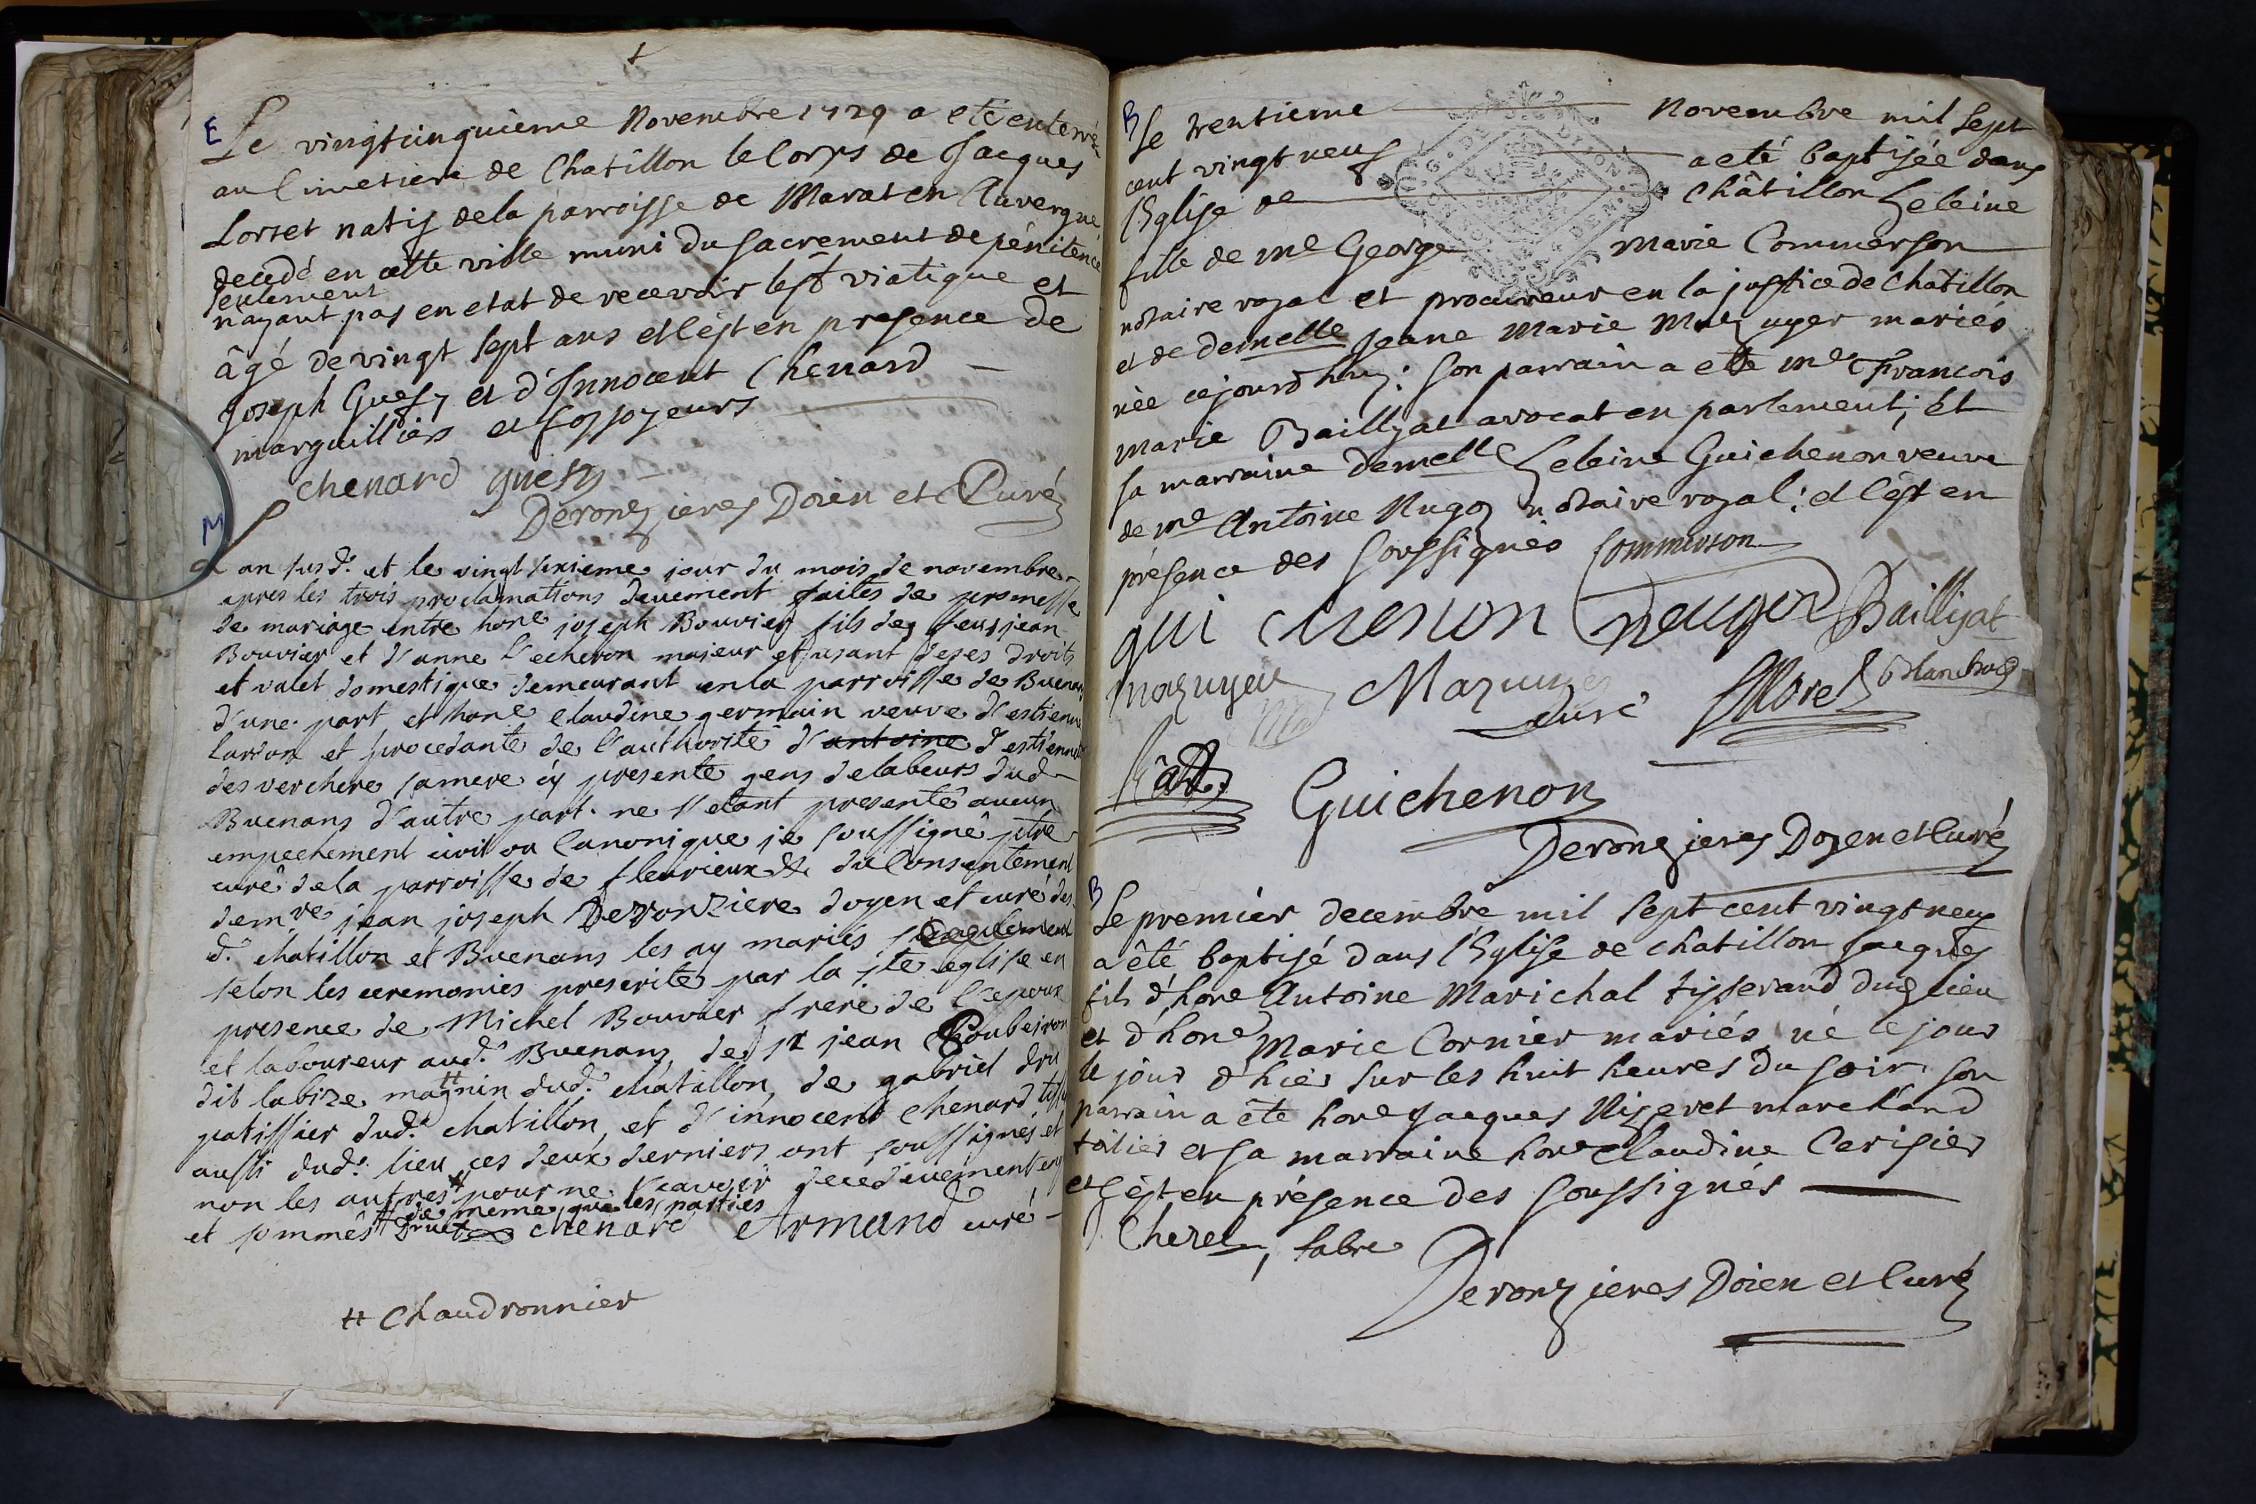 E
Le vingtcinquieme Novembre 1729 a eté enterré
au Cimetiere de Chatillon le Corps de Jacques
Lorset natif de la parroisse de Marat en Auvergne
decedé en cette ville muni du sacrement de pénitence
seulement
n'ayant pas en etat de recevoir le st viatique et
âgé de vingt sept ans et c'est en presence de
Joseph Guesy et d'Innocent Chenard
marguilliers et fossoyeurs
chenard guesy
Deronzieres Doien et Curé
M
L'an susd. et le vingt sixieme jour du mois de novembre
apres les trois proclamations deuement faites de promesse
de mariage entre hone joseph Bouvier fils de feu jean
Bouvier et d'anne l'echeron majeur et usant de ses droits
et valet domestique demeurant en la parroisse de Buenans
d'une part et hone claudine germain veuve d'estienne
larson et procedante de l'authorité d'antoine d'estiennette
des verchere sa mere icy presente gens de labeurs dud
Buenans d'autre part. ne s'etant presenté aucun
empechement civil ou Canonique je soussigné ptre
curé de la parroisse de fleurieux du Consentement
de mre jean joseph Deronziere doyen et curé dud
d. chatillon et Buenans les ay mariés
selon les ceremonies prescrite par la ste eglise en
presence de Michel Bouvier frere de l'epoux
et laboureur aud. Buenans, de sr jean Goubeiron
dit labize magnin dud. chatillon, de gabriel dru
patissier dud. chatillon, et d'innocent chenard
aussi dud. lieu ces deux derniers ont soussignés et
non les autres pour ne sçavoir de ce duement enq
de meme que les parties
et sommés Druet chenard Armand curé
# Chaudronnier
B
Le trentieme Novembre mil sept
cent vingt neuf a eté baptisée dans
l'Eglise de Châtillon heleine
fille de me George Marie Commerson
notaire royal et procureur en la justice de Chatillon
et de demelle Jeane Marie Mazuyer mariés
née cejourd'huy: son parrain a eté me François
Marie Baillyat avocat en parlement; et
sa marraine demelle heleine Guichenon veuve
de me Antoine Nugoz notaire royal: et c'est en
présence des soussignés Commerson
guichenon Neugoz Baillyat
mazuyer Mazuyer curé Morel Blanchard
Guichenon
Deronzieres Doyen et Curé
B
Le premier decembre mil sept cent vingt neuf
a été baptisé dans l'Eglise de chatillon Jacques
fils d'hone Antoine Marichal tisserand dud lieu
et d'hone Marie Cornier mariés né le jour
le jour d'hier sur les huit heures du soir, son
parrain a été hone Jacques Nizeret marchand
toilier et sa marraine hone Claudine Cerisier
et c'est en présence des soussignés
Cherel, fabre
Deronzieres Doien et Curé